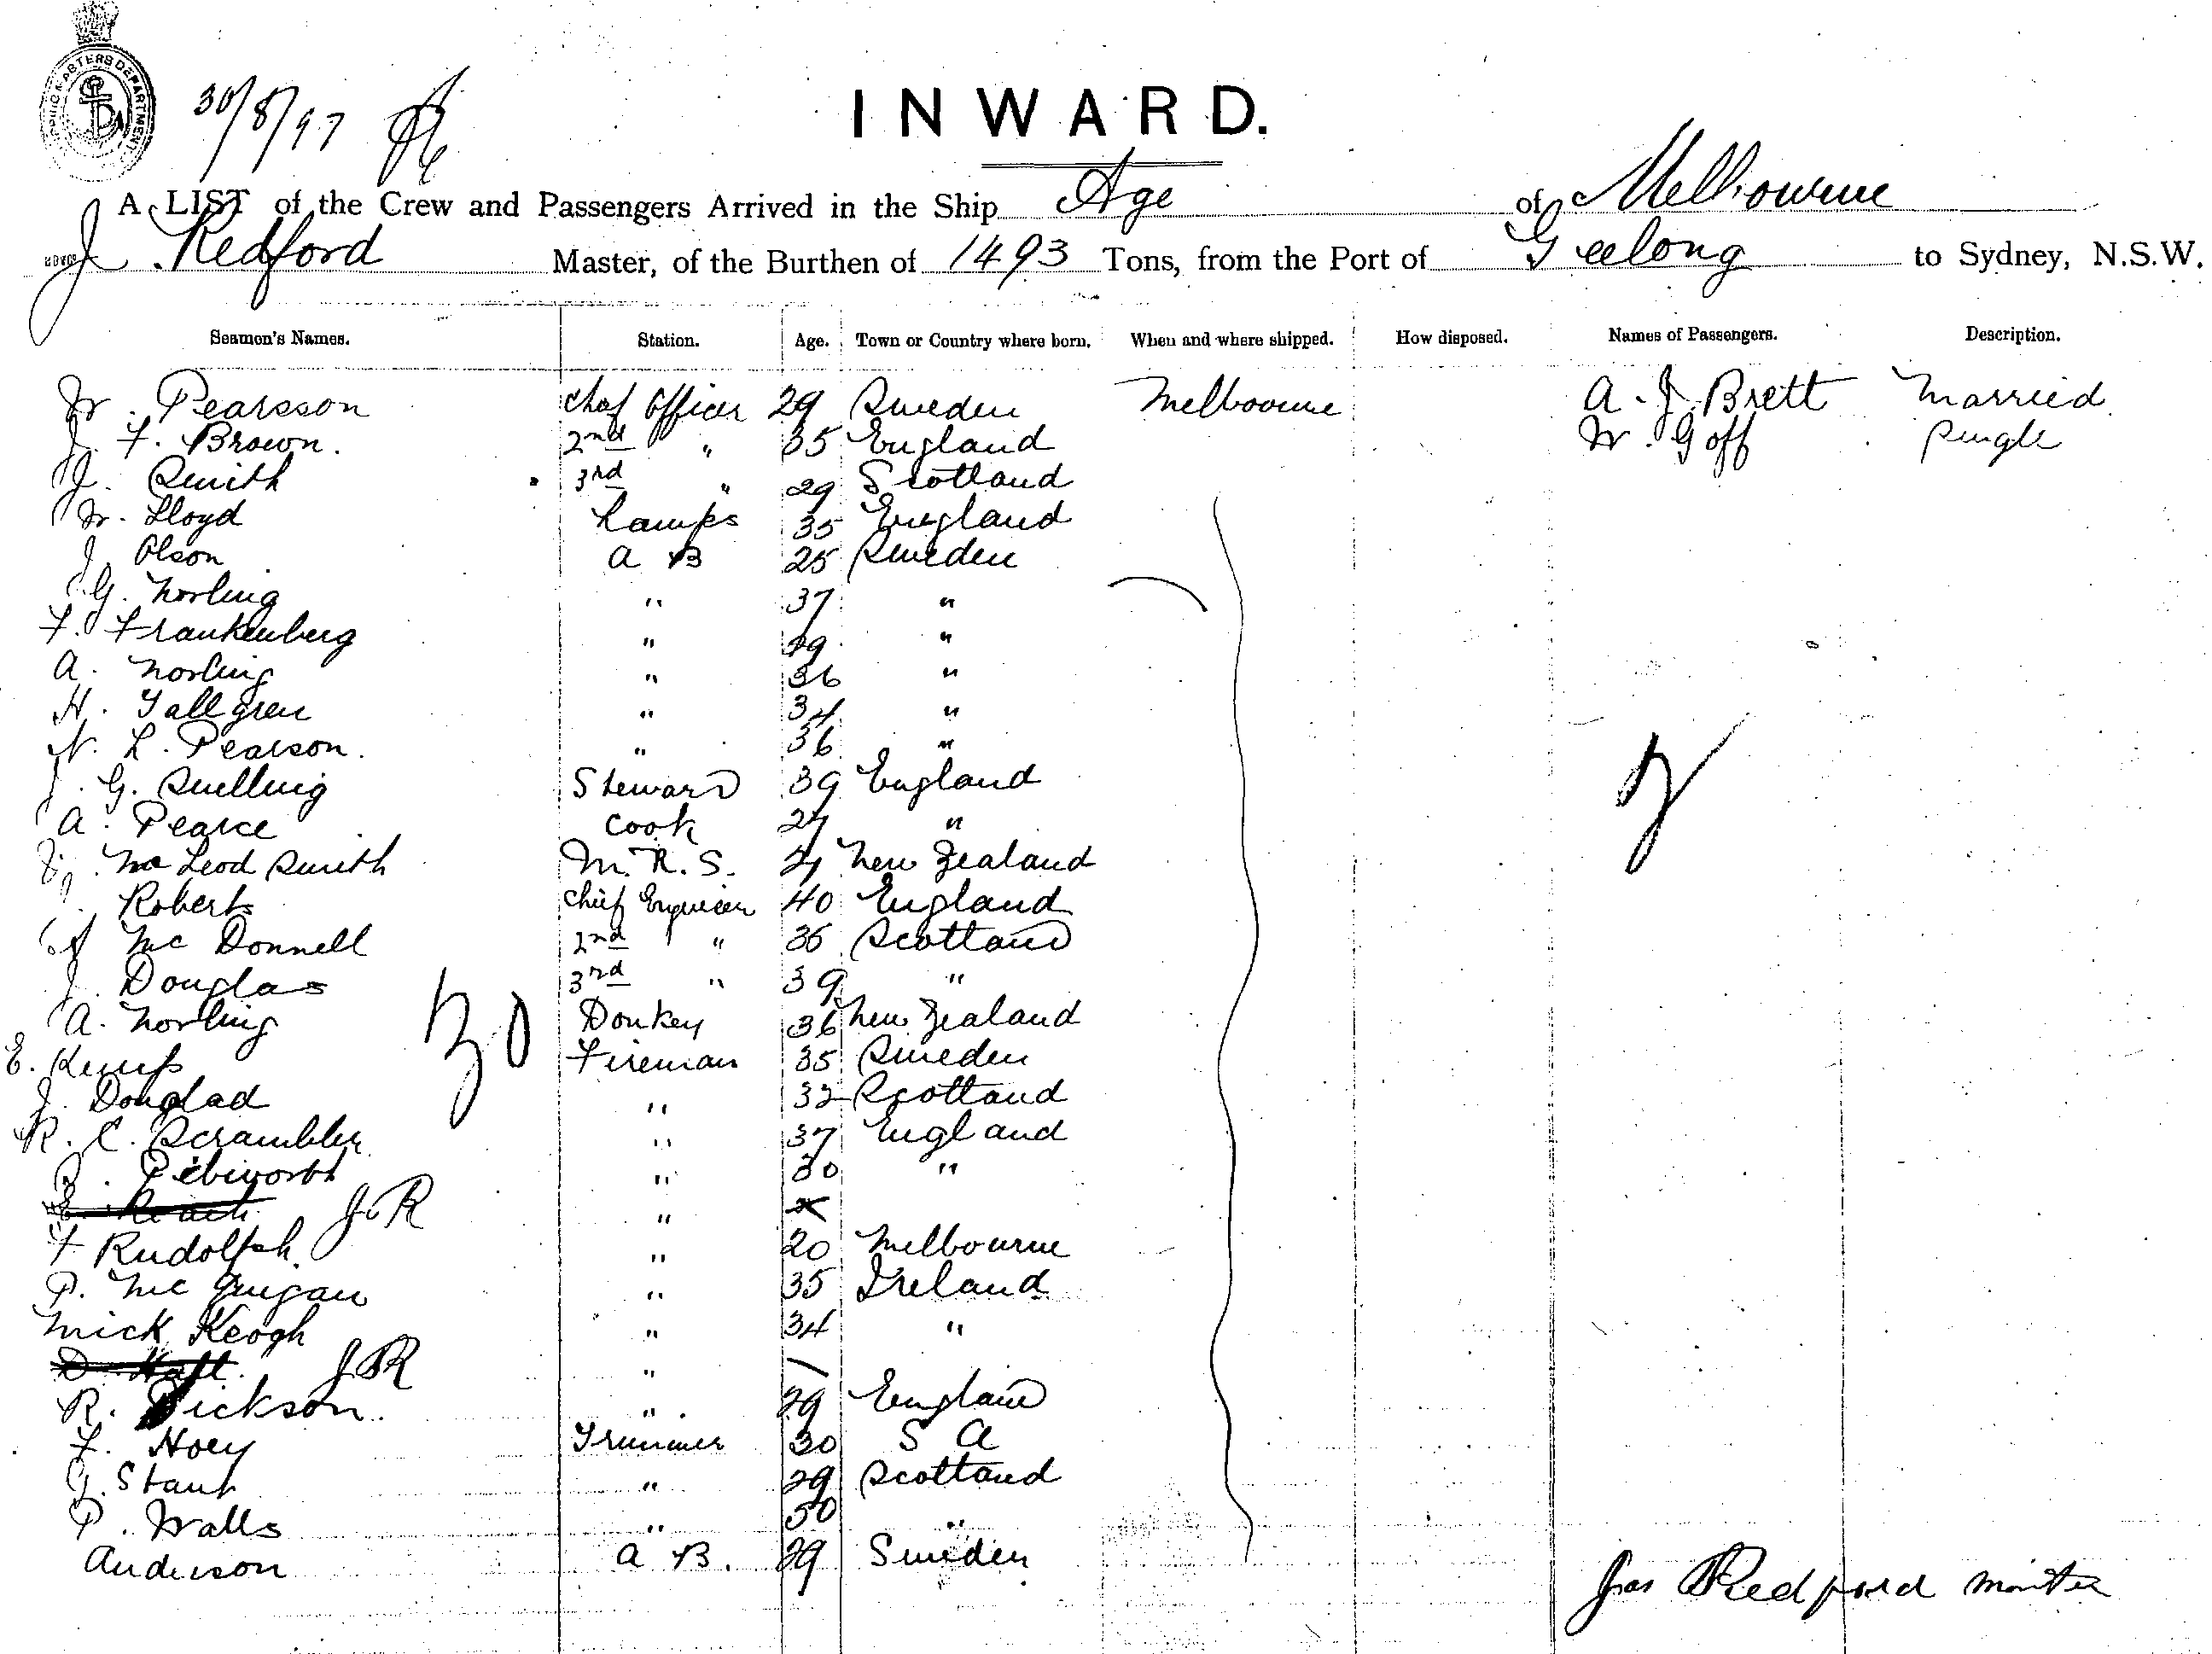 SHIPPING MASTERS DEPARTMENT
30/8/97
INWARD.
A LIST of the Crew and Passengers Arrived in the Ship Age of Melbourne
J Redford Master, of the Burthen of 1493 Tons, from the Port of Geelong to Sydney, N.S.W.
Seamen's Names. Station. Age. Town or Country where born. When and where shipped. How disposed. Names of Passengers. Description.
W. Pearsson Chef Officer 29 Sweden Melbourne A. J. Brett Married
J. F. Brown. 2nd " 35 England W. Goff Single
J. Smith 3rd " 29 Scotland
W. Lloyd Lamps 35 England
J. Olson A B 25 Sweden
G. Norling " 37 "
F. Frankenberg " 29 "
A. Norling " 36 "
H. Tallgren " 34 "
N. L. Pearson. " 36 "
J. G. Snelling Steward 39 England
A. Pearce Cook 27 "
Mc Leod Smith M. R. S. 21 New Zealand
Roberts Chief Engineer 40 England
Mc Donnell 2nd " 36 Scotland
J. Douglas 3rd " 39 "
A. Norling Donkey 36 New Zealand
30
E. Kemp Fireman 35 Sweden
J. Douglad " 32 Scotland
R. C. Scrambler " 37 England
Pebworth " 30 "
E. Roach J. R "
F Rudolph. " 20 Melbourne
P. Mc Guigan " 35 Ireland
Mick Keogh " 34 "
D Hoft J. R "
R. Dickson. " 29 England
F. Hoey Trimmer 30 S A
G. Stant " 29 Scotland
P. Walls " 50 "
Anderson A B. 29 Sweden
Jas Redford Master